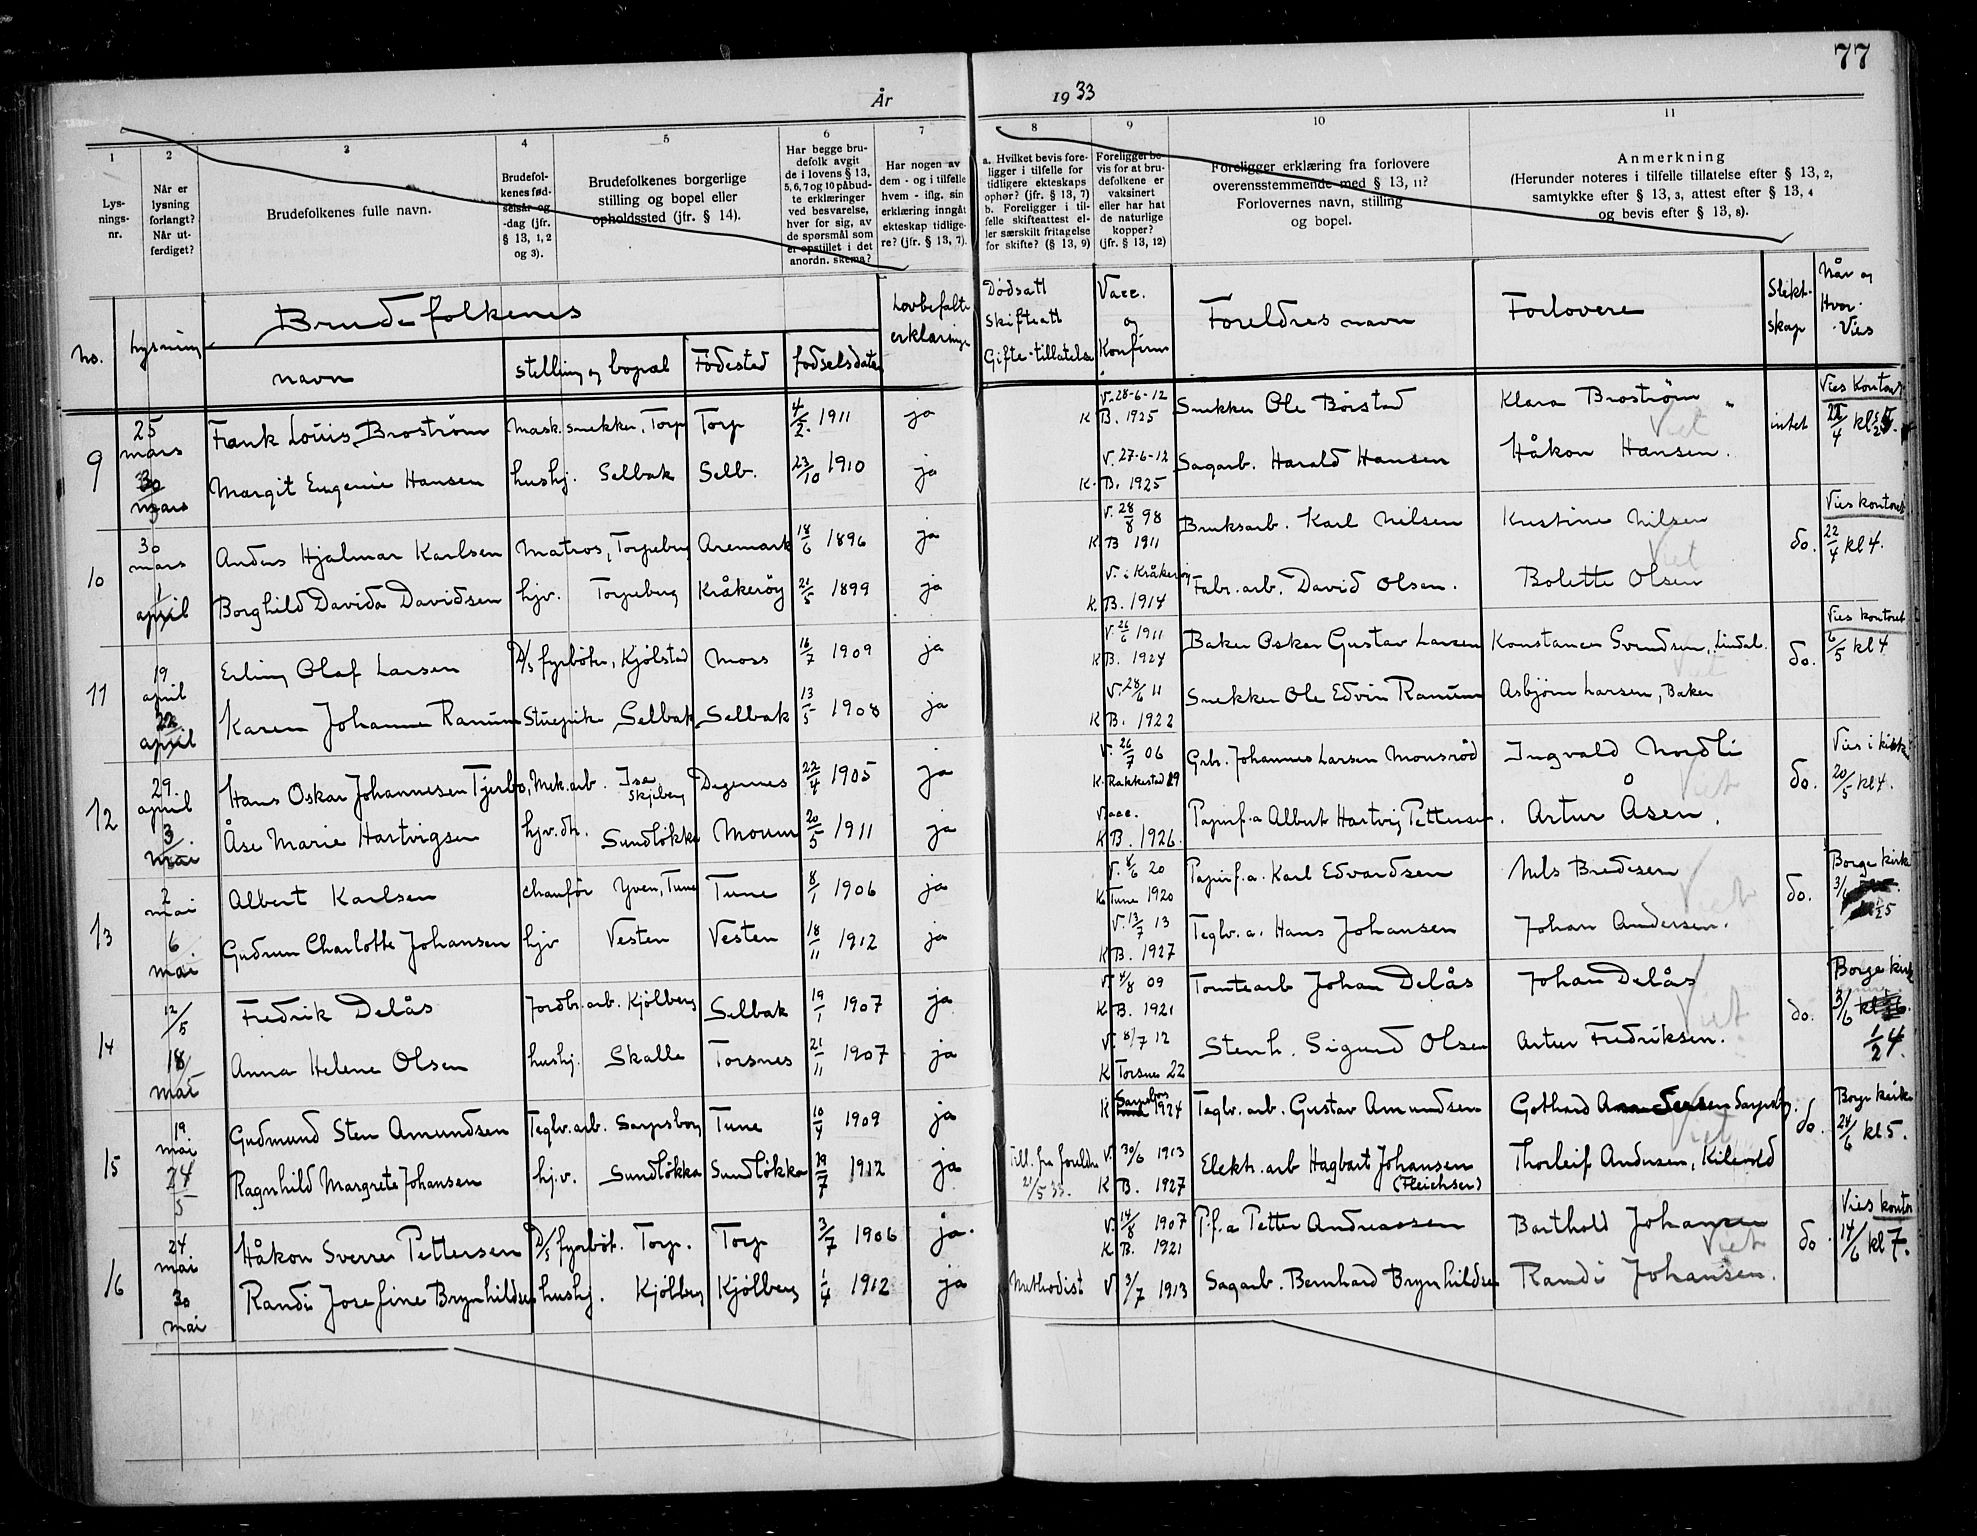 77
År 1933
1 2 3 4 5 6 7 8 9 10 11
Lys-
nings-
nr.
Når er
lysning
forlangt?
Når ut-
ferdiget?
Brudefolkenes fulle navn.
Brudefol-
kenes fød-
selsår og
-dag (jfr.
§ 13, 1, 2
og 3).
Brudefolkenes borgerlige
stilling og bopel eller
opholdssted (jfr. § 14).
Har begge bru-
defolk avgit
de i lovens § 13,
5, 6, 7 og 10 påbud-
te erklæringer
ved besvarelse,
hver for sig, av
de spørsmål som
er opstillet i det
anordn. skema?
Har nogen av
dem - og i tilfelle
hvem - iflg. sin
erklæring inngåt
ekteskap tidlige-
re? (jfr. § 13, 7).
a. Hvilket bevis fore-
ligger i tilfelle for
tidligere ekteskaps
ophør? (jfr. § 13, 7)
b. Foreligger i til-
felle skifteattest el-
ler særskilt fritagelse
for skifte? (§ 13, 9)
Foreligger be-
vis for at bru-
defolkene er
vaksinert
eller har hat
de naturlige
kopper?
(jfr. § 13, 12)
Foreligger erklæring fra forlovere
overensstemmende med § 13, 11?
Forlovernes navn, stilling
og bopel.
Anmerkning
(Herunder noteres i tilfelle tillatelse efter § 13, 2,
samtykke efter § 13, 3, attest efter § 13, 4
og bevis efter § 13, 8).
no.
Lysning
Brudefolkenes
navn
stelling og bopæl
Födested
fodselsdata
Lovbefalte
erklaringer
Dödsatt
Skifteatt
Gifte-tillatelse
Vacc.
og
Konfirm
Foreldres navn
Forlovere
Slekt-
skap
Når og
Hvor
Vies
9
25 mars Frank Louis Broström Mask.snekker, Torp Torp 4/2 1911 ja V. 28-6-12 K B. 1925 Snekker Ole Börstad Klara Broström intet Vies Kontoret
30 mars Margit Eugenie Hansen hushj. Selbak Selb. 23/10 1910 ja V. 27-6-12 K. B. 1925 Sagarb. Harald Hansen Håkon Hansen. Viet
10
30 mars Anders Hjalmar Karlsen Matros, Torpeberg Aremark 18/6 1896 ja V. 28/8 98 K B 1911 Bruksarb. Karl Nilsen Kristine Nilsen do. Vies kontoret 22/4 kl 4.
1 april Borghild Davida Davidsen hjv. Torpeberg Kråkeröy 21/5 1899 ja V. i Kråkeröy K. B. 1914 Fabr. arb. David Olsen. Bolette Olsen Viet
11
19 april Erling Olaf Larsen D/s fyrböter, Kjölstad Moss 16/7 1909 ja V. 26/6 1911 K B. 1924 Baker Oskar Gustav Larsen Konstanse Svendsen, Lindal. do. Vies kontoret 6/5 kl 4
22 april Karen Johanne Ranum Stuepike Selbak Selbak 13/5 1908 ja V. 28/6 11 K B. 1922 Snekker Ole Edvin Ranum Asbjörn Larsen, Baker Viet
12
29. april Hans Oskar Johannesen Tjerbo, Mek.arb. Ise Skjeberg Degernes 22/4 1905 ja V. 26/7 06 K. Rakkestad 19 Grb. Johannes Larsen Monsröd Ingvald Nordli do. Vies i kirke 20/5 kl 4.
3 mai Åse Marie Hartvigsen hjv. dr. Sundlökka Moum 20/5 1911 ja Vacc. K B. 1926. Papirf.a Albert Hartvig Pettersen. Artur Åsen. Viet
13
2 mai Albert Karlsen chauför Yven, Tune Tune 8/1 1906 ja V. 8/6 20 K Tune 1920 Papirf.a. Karl Edvardsen Nils Bredesen do. Borge kirke 3/6
6 mai Gudrun Charlotte Johansen hjv Vesten Vesten 18/11 1912 ja V. 13/7 13 K B. 1927 Teglv. a. Hans Johansen Johan Andersen. Viet
14
12/5 Fredrik Delås Jordbr.arb. Kjölberg Selbak 19/1 1907 ja V. 4/8 09 K B. 1921 Tomtearb Johan Delås Johan Delås do. Borge kirke 3/6 kl 1/2 4.
18 mai Anna Helene Olsen hushj. Skalle Torsnes 21/11 1907 ja V. 8/7 12 K Torsnes 22 Stenh. Sigurd Olsen Artur Fredriksen. Viet
15
19 mai Gudmund Sten Amundsen Teglv.arb. Sarpsborg Tune 10/4 1909 ja K Sarpsborg 1924 Teglv. arb. Gustav Amundsen Gothard Andersen Sarpsbg. do. Borge kirke 24/6 kl 5.
24/5 Ragnhild Margrete Johansen hj.v. Sundlökka Sundlökka 29/7 1912 ja Till. fra foreldre 21/5 33. V. 30/6 1913 K B. 1927 Elektr. arb Hagbart Johansen (Fleichser) Thorleif Andersen, Kilevold Viet
16
24 mai Håkon Sverre Pettersen D/s fyrböt. Torp. Torp 3/7 1906 ja. V. 14/8 1907 K B. 1921 P.f.a Petter Andreassen Barthold Johansen do. Vies kontor 14/6 kl 7.
30 mai Randi Josefine Brynhildsen hushj. Kjölberg Kjölberg 1/4 1912 ja Methodist V 3/7 1913 Sagarb. Bernhard Brynhildsen Randi Johansen. Viet